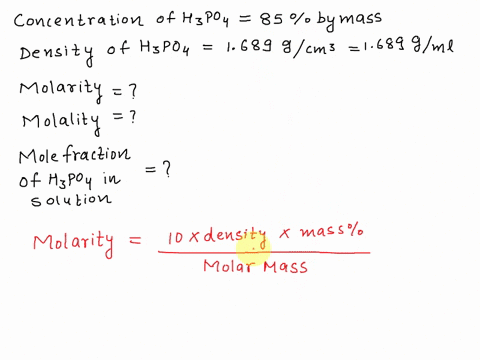 Concentration of H3PO4 = 85% by mass
Density of H3PO4 = 1.689 g/cm3 = 1.689 g/ml
Molarity = ?
Molality = ?
Mole fraction
of H3PO4 in = ?
solution
Molarity = 10 x density x mass%
Molar Mass